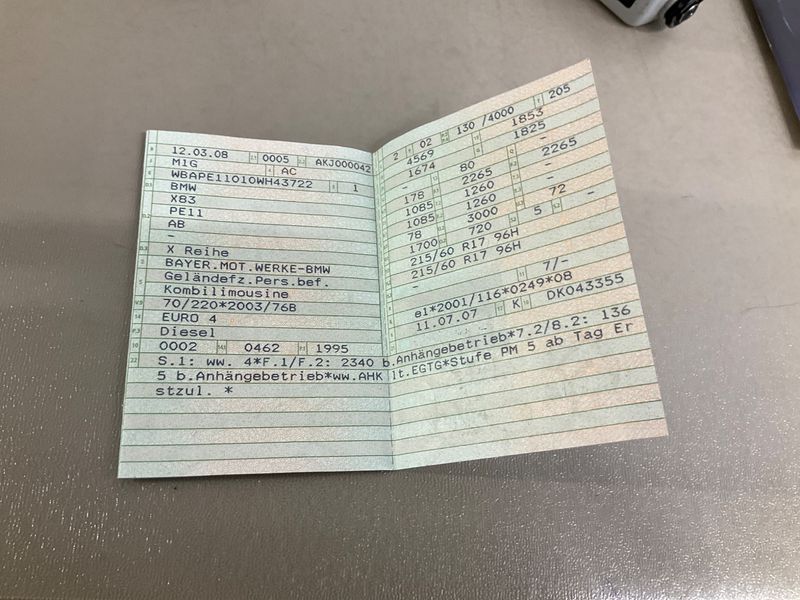 12.03.08 0005 AKJ000042
M1G AC
WBAPE11010WH43722 1
BMW
X83
PE11
AB
-
X Reihe
BAYER.MOT.WERKE-BMW
Geländefz.Pers.bef.
Kombilimousine
70/220*2003/76B
EURO 4
Diesel
0002 0462 1995
2 02 130 /4000 205
4569 1853
1674 1825
- 80 -
178 2265 2265
1085 1260 -
1085 1260 72 -
78 3000 5
1700 720
215/60 R17 96H
215/60 R17 96H
- 7/-
e1*2001/116*0249*08
11.07.07 K DK043355
S.1: ww. 4*F.1/F.2: 2340 b.Anhängebetrieb*7.2/8.2: 136
5 b.Anhängebetrieb*ww.AHK lt.EGTG*Stufe PM 5 ab Tag Er
stzul. *